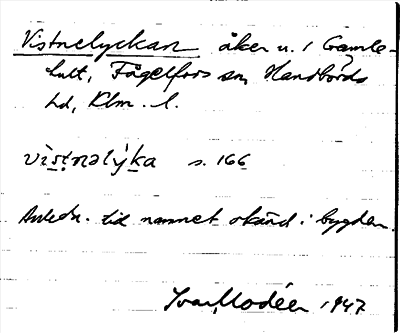 Vistnelyckan åker u. 1 Gamle-
hult, Fågelfors sn, Handbörds
hd, Klm. l.
vìs̱ṯnəlýḵa s. 166
Anledn. till namnet okänd i bygden.
Ivar Modéer 1947